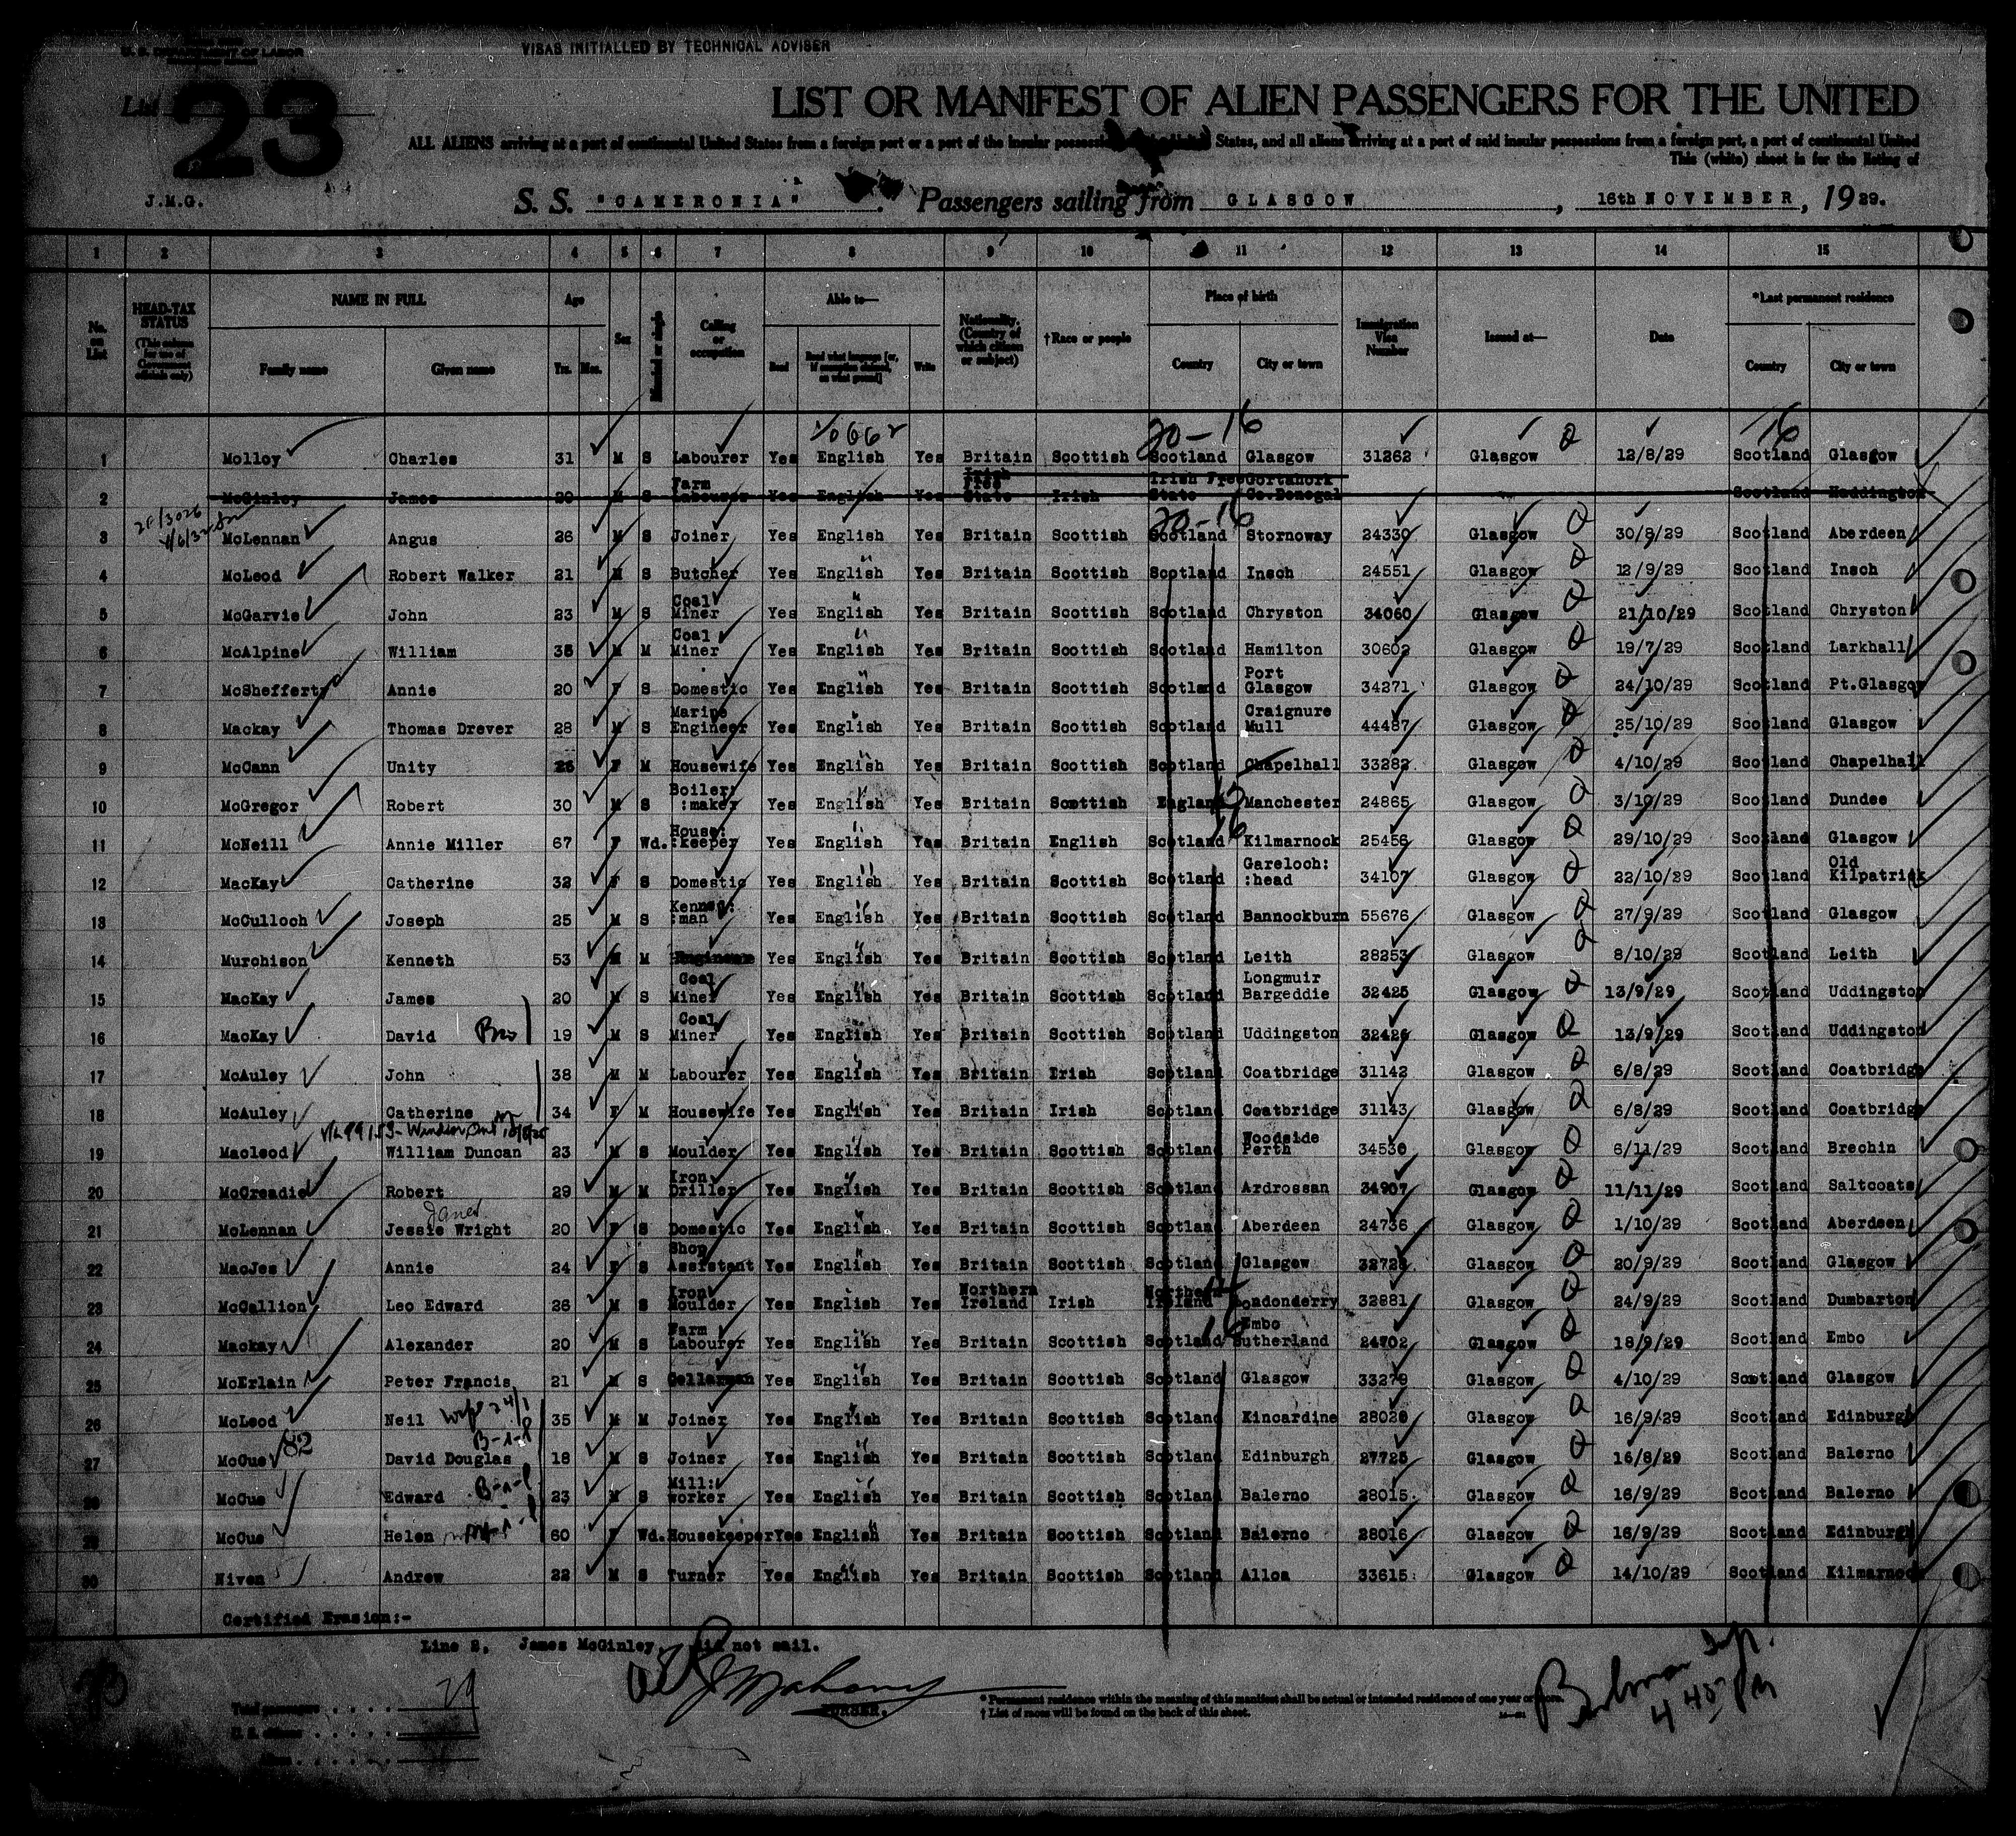 U. S. DEPARTMENT OF LABOR
VISAS INITIALLED BY TECHNICAL ADVISER
List 23
LIST OR MANIFEST OF ALIEN PASSENGERS FOR THE UNITED
ALL ALIENS arriving at a port of continental United States from a foreign port or a port of the insular possessions States, and all aliens arriving at a port of said insular possessions from a foreign port, a port of continental United
This (white) sheet is for the listing of
J.M.G.
S. S. "CAMERONIA" Passengers sailing from GLASGOW, 16th NOVEMBER, 1929.
1 2 3 4 5 6 7 8 9 10 11 12 13 14 15
No. on List
HEAD-TAX STATUS (This column for use of Government officials only)
NAME IN FULL Family name Given name
Age Yrs. Mos.
Sex
Married or single
Calling or occupation
Able to— Read Read what language [or, if exemption claimed, on what ground] Write
Nationality. (Country of which citizen or subject)
†Race or people
Place of birth Country City or town
Immigration Visa Number
Issued at—
Date
*Last permanent residence Country City or town
20-16 16
1 Molloy Charles 31 M S Labourer Yes English Yes Britain Scottish Scotland Glasgow 31262 Glasgow 12/8/29 Scotland Glasgow
2 McGinley James 20 M S Farm Labourer Yes English Yes Irish Free State Irish Irish Free State Gortahork Co.Donegal Scotland Haddington
20-16
3 McLennan Angus 26 M S Joiner Yes English Yes Britain Scottish Scotland Stornoway 24330 Glasgow 30/8/29 Scotland Aberdeen
4 McLeod Robert Walker 21 M S Butcher Yes English Yes Britain Scottish Scotland Insch 24551 Glasgow 12/9/29 Scotland Insch
5 McGarvie John 23 M S Coal Miner Yes English Yes Britain Scottish Scotland Chryston 34060 Glasgow 21/10/29 Scotland Chryston
6 McAlpine William 35 M M Coal Miner Yes English Yes Britain Scottish Scotland Hamilton 30602 Glasgow 19/7/29 Scotland Larkhall
7 McShefferty Annie 20 F S Domestic Yes English Yes Britain Scottish Scotland Port Glasgow 34271 Glasgow 24/10/29 Scotland Pt.Glasgow
8 Mackay Thomas Drever 28 M S Marine Engineer Yes English Yes Britain Scottish Scotland Craignure Mull 44487 Glasgow 25/10/29 Scotland Glasgow
9 McCann Unity 26 F M Housewife Yes English Yes Britain Scottish Scotland Chapelhall 33282 Glasgow 4/10/29 Scotland Chapelhall
10 McGregor Robert 30 M S Boiler: :maker Yes English Yes Britain Scottish England Manchester 24865 Glasgow 3/10/29 Scotland Dundee
11 McNeill Annie Miller 67 F Wd. House: :keeper Yes English Yes Britain English Scotland Kilmarnock 25456 Glasgow 29/10/29 Scotland Glasgow
12 MacKay Catherine 32 F S Domestic Yes English Yes Britain Scottish Scotland Gareloch: :head 34107 Glasgow 22/10/29 Scotland Old Kilpatrick
13 McCulloch Joseph 25 M S Kennel: :man Yes English Yes Britain Scottish Scotland Bannockburn 55676 Glasgow 27/9/29 Scotland Glasgow
14 Murchison Kenneth 53 M M Engineer Yes English Yes Britain Scottish Scotland Leith 28253 Glasgow 8/10/29 Scotland Leith
15 MacKay James 20 M S Coal Miner Yes English Yes Britain Scottish Scotland Longmuir Bargeddie 32425 Glasgow 13/9/29 Scotland Uddingston
16 MacKay David Bro 19 M S Coal Miner Yes English Yes Britain Scottish Scotland Uddingston 32426 Glasgow 13/9/29 Scotland Uddingston
17 McAuley John 38 M M Labourer Yes English Yes Britain Irish Scotland Coatbridge 31142 Glasgow 6/8/29 Scotland Coatbridge
18 McAuley Catherine 34 F M Housewife Yes English Yes Britain Irish Scotland Coatbridge 31143 Glasgow 6/8/29 Scotland Coatbridge
19 Macleod William Duncan 23 M S Moulder Yes English Yes Britain Scottish Scotland Woodside Perth 34530 Glasgow 6/11/29 Scotland Brechin
20 McCreadie Robert 29 M M Iron Driller Yes English Yes Britain Scottish Scotland Ardrossan 34907 Glasgow 11/11/29 Scotland Saltcoats
21 McLennan Jessie Wright 20 F S Domestic Yes English Yes Britain Scottish Scotland Aberdeen 24736 Glasgow 1/10/29 Scotland Aberdeen
22 MacJes Annie 24 F S Shop Assistant Yes English Yes Britain Scottish Scotland Glasgow 32728 Glasgow 20/9/29 Scotland Glasgow
23 McCallion Leo Edward 26 M S Iron Moulder Yes English Yes Northern Ireland Irish Northern Ireland Londonderry 32881 Glasgow 24/9/29 Scotland Dumbarton
24 Mackay Alexander 20 M S Farm Labourer Yes English Yes Britain Scottish Scotland Embo Sutherland 24702 Glasgow 18/9/29 Scotland Embo
25 McErlain Peter Francis 21 M S Cellarman Yes English Yes Britain Scottish Scotland Glasgow 33279 Glasgow 4/10/29 Scotland Glasgow
26 McLeod Neil 35 M M Joiner Yes English Yes Britain Scottish Scotland Kincardine 28020 Glasgow 16/9/29 Scotland Edinburgh
27 McCue David Douglas B-i-l 18 M S Joiner Yes English Yes Britain Scottish Scotland Edinburgh 27725 Glasgow 16/8/29 Scotland Balerno
28 McCue Edward B-i-l 23 M S Mill: worker Yes English Yes Britain Scottish Scotland Balerno 28015 Glasgow 16/9/29 Scotland Balerno
29 McCue Helen M-i-l 60 F Wd. Housekeeper Yes English Yes Britain Scottish Scotland Balerno 28016 Glasgow 16/9/29 Scotland Edinburgh
30 Niven Andrew 22 M S Turner Yes English Yes Britain Scottish Scotland Alloa 33615 Glasgow 14/10/29 Scotland Kilmarnock
Certified Erasion:-
Line 2, James McGinley, did not sail.
PURSER.
Total passengers 29
U. S. citizens
Aliens
* Permanent residence within the meaning of this manifest shall be actual or intended residence of one year or more.
† List of races will be found on the back of this sheet.